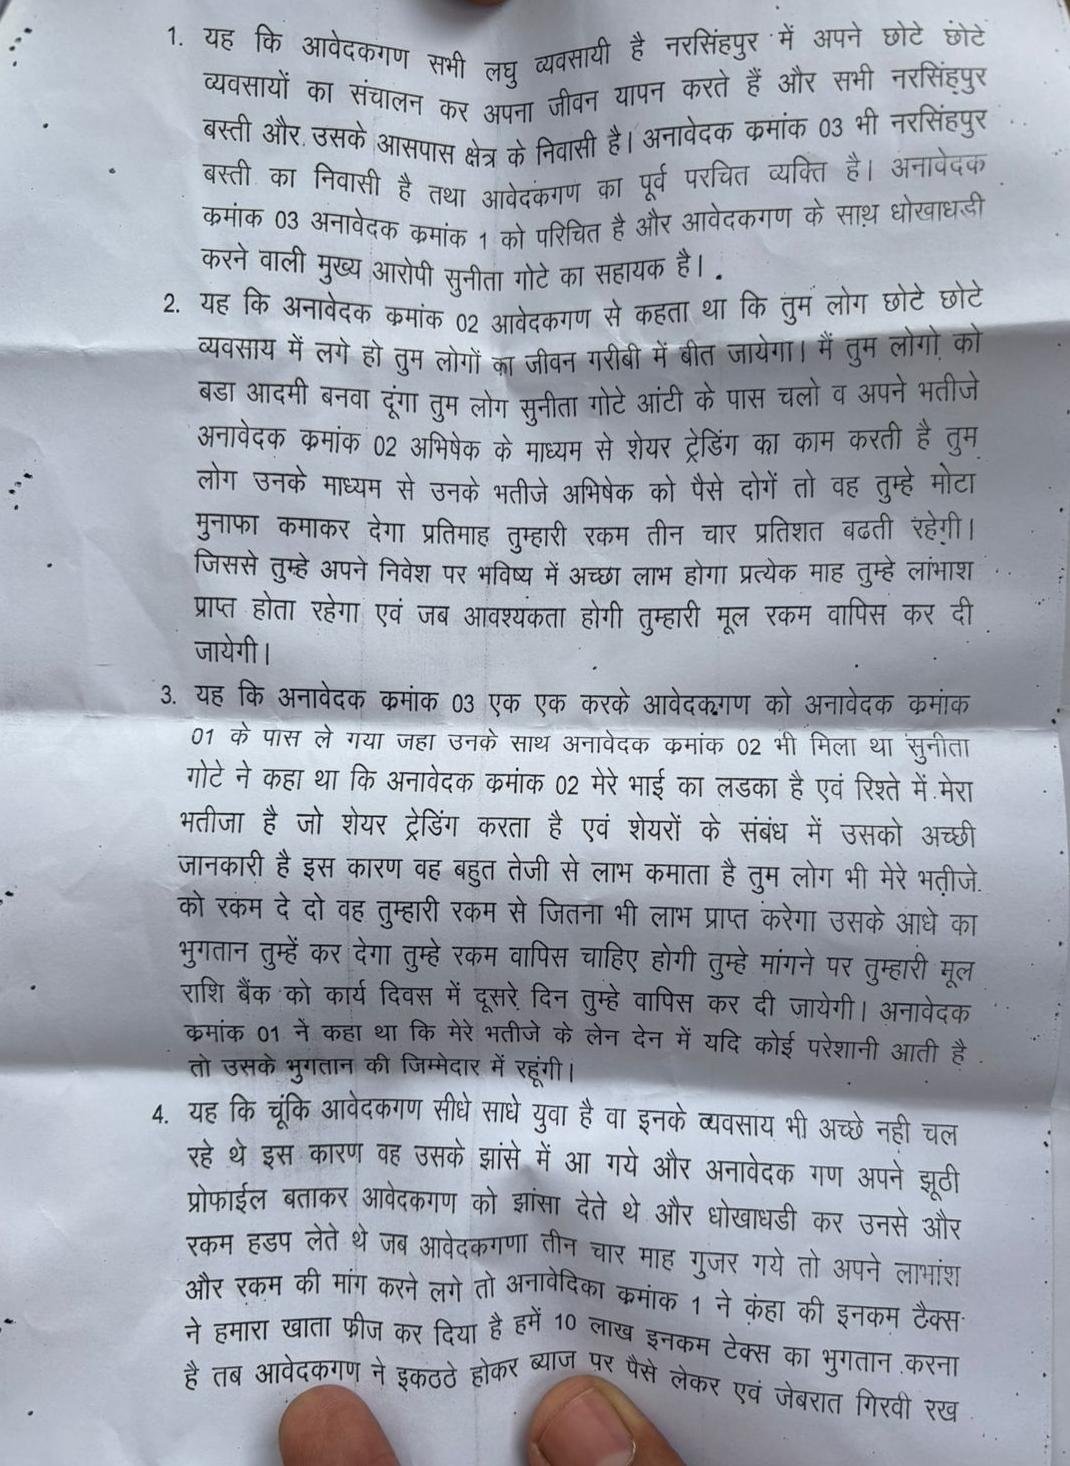 1. यह कि आवेदकगण सभी लघु व्यवसायी है नरसिंहपुर में अपने छोटे छोटे
व्यवसायों का संचालन कर अपना जीवन यापन करते हैं और सभी नरसिंहपुर
बस्ती और उसके आसपास क्षेत्र के निवासी है। अनावेदक क्रमांक 03 भी नरसिंहपुर
बस्ती का निवासी है तथा आवेदकगण का पूर्व परचित व्यक्ति है। अनावेदक
क्रमांक 03 अनावेदक क्रमांक 1 को परिचित है और आवेदकगण के साथ धोखाधडी
करने वाली मुख्य आरोपी सुनीता गोटे का सहायक है।
2. यह कि अनावेदक क्रमांक 02 आवेदकगण से कहता था कि तुम लोग छोटे छोटे
व्यवसाय में लगे हो तुम लोगों का जीवन गरीबी में बीत जायेगा। मैं तुम लोगो को
बडा आदमी बनवा दूंगा तुम लोग सुनीता गोटे आंटी के पास चलो व अपने भतीजे
अनावेदक क्रमांक 02 अभिषेक के माध्यम से शेयर ट्रेडिंग का काम करती है तुम
लोग उनके माध्यम से उनके भतीजे अभिषेक को पैसे दोगें तो वह तुम्हे मोटा
मुनाफा कमाकर देगा प्रतिमाह तुम्हारी रकम तीन चार प्रतिशत बढती रहेगी।
जिससे तुम्हे अपने निवेश पर भविष्य में अच्छा लाभ होगा प्रत्येक माह तुम्हे लांभाश
प्राप्त होता रहेगा एवं जब आवश्यकता होगी तुम्हारी मूल रकम वापिस कर दी
जायेगी।
3. यह कि अनावेदक क्रमांक 03 एक एक करके आवेदकगण को अनावेदक क्रमांक
01 के पास ले गया जहा उनके साथ अनावेदक क्रमांक 02 भी मिला था सुनीता
गोटे ने कहा था कि अनावेदक क्रमांक 02 मेरे भाई का लडका है एवं रिश्ते में मेरा
भतीजा है जो शेयर ट्रेडिंग करता है एवं शेयरों के संबंध में उसको अच्छी
जानकारी है इस कारण वह बहुत तेजी से लाभ कमाता है तुम लोग भी मेरे भतीजे
को रकम दे दो वह तुम्हारी रकम से जितना भी लाभ प्राप्त करेगा उसके आधे का
भुगतान तुम्हें कर देगा तुम्हे रकम वापिस चाहिए होगी तुम्हे मांगने पर तुम्हारी मूल
राशि बैंक को कार्य दिवस में दूसरे दिन तुम्हे वापिस कर दी जायेगी। अनावेदक
क्रमांक 01 नें कहा था कि मेरे भतीजे के लेन देन में यदि कोई परेशानी आती है
तो उसके भुगतान की जिम्मेदार में रहूंगी।
4. यह कि चूंकि आवेदकगण सीधे साधे युवा है वा इनके व्यवसाय भी अच्छे नही चल
रहे थे इस कारण वह उसके झांसे में आ गये और अनावेदक गण अपने झूठी
प्रोफाईल बताकर आवेदकगण को झांसा देते थे और धोखाधडी कर उनसे और
रकम हडप लेते थे जब आवेदकगणा तीन चार माह गुजर गये तो अपने लाभांश
और रकम की मांग करने लगे तो अनावेदिका क्रमांक 1 ने कहा की इनकम टैक्स
ने हमारा खाता फ्रीज कर दिया है हमें 10 लाख इनकम टेक्स का भुगतान करना
है तब आवेदकगण ने इकठठे होकर ब्याज पर पैसे लेकर एवं जेबरात गिरवी रख